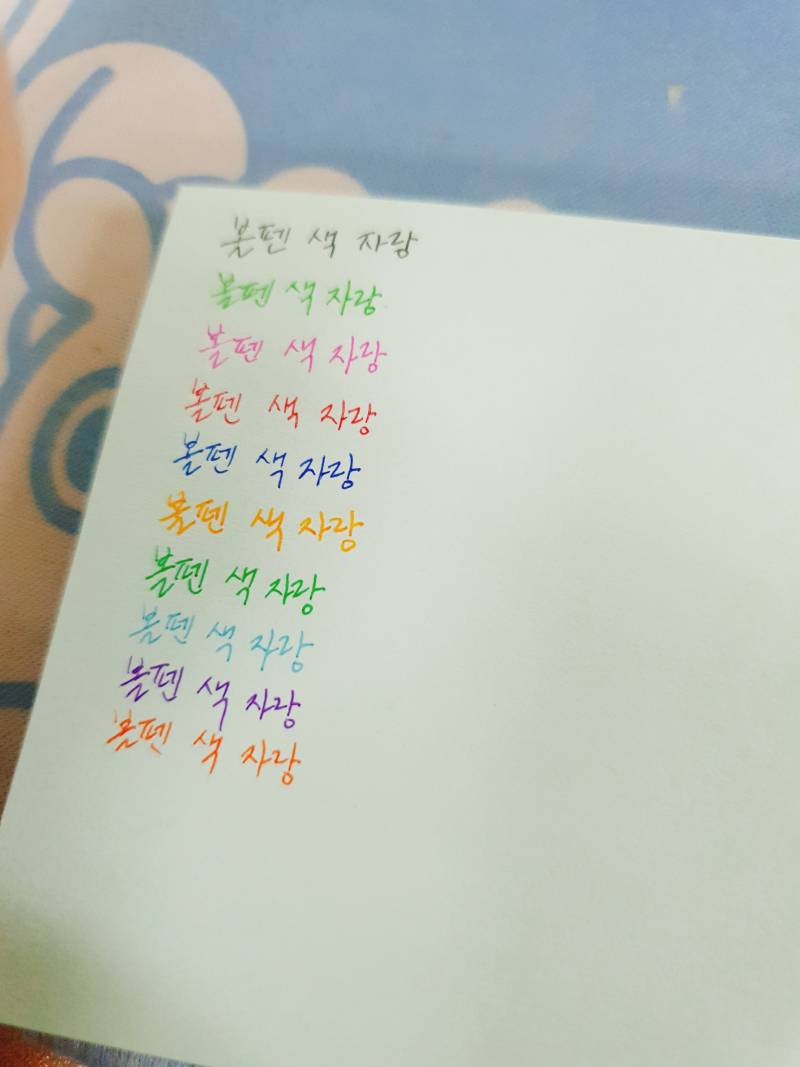 볼펜 색 자랑
볼펜 색 자랑
볼펜 색 자랑
볼펜 색 자랑
볼펜 색 자랑
볼펜 색 자랑
볼펜 색 자랑
볼펜 색 자랑
볼펜 색 자랑
볼펜 색 자랑